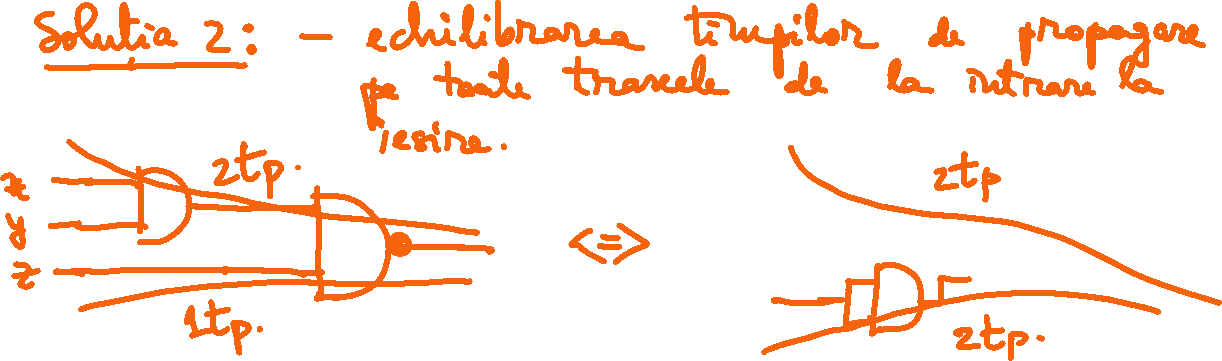 Solutia 2: - echilibrarea timpilor de propagare
pe toate traseele de la intrare la
iesire.
2tp.
x
y
z
1tp.
<=>
2tp
2tp.